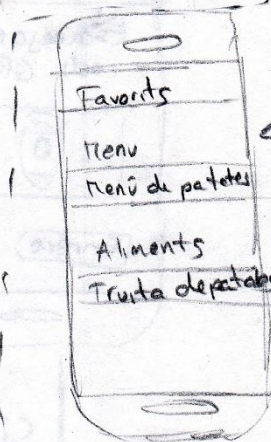 Favorits
Menu
Menú de patates
Aliments
Truita de patates